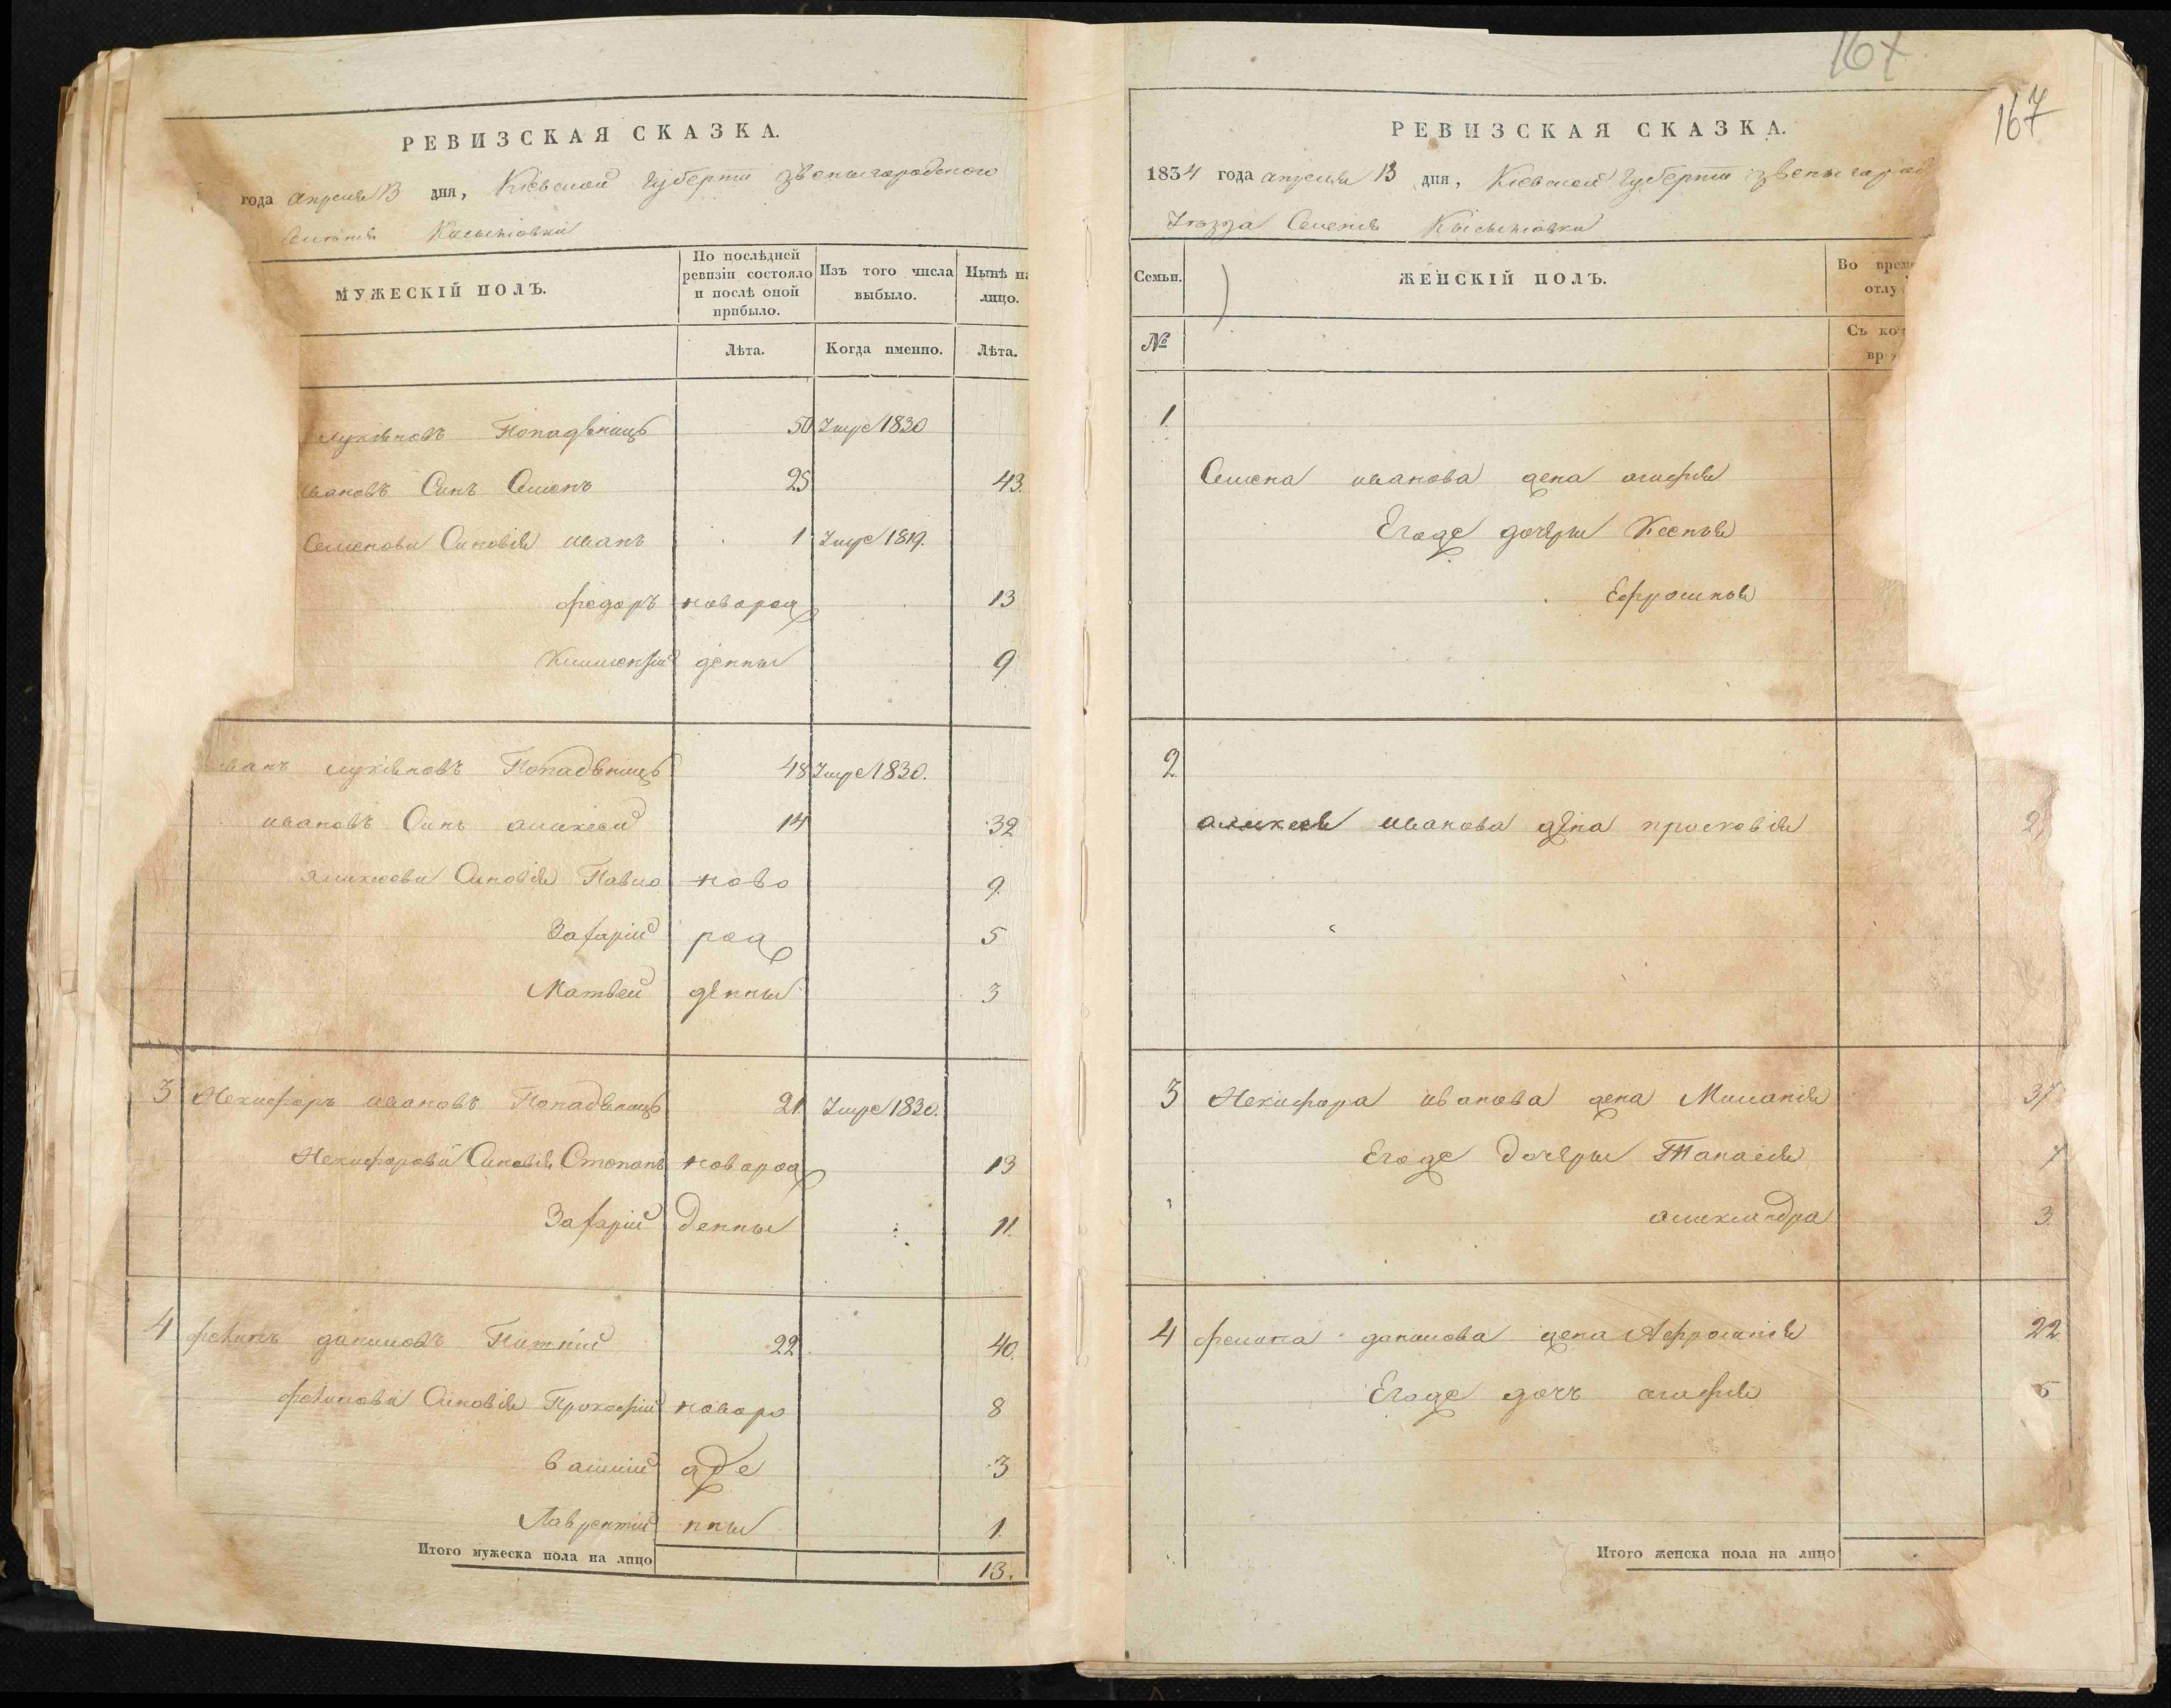 РЕВИЗСКАЯ СКАЗКА.
года апреля 13 дня, Кіевской Губерніи Звенигородского
Селенія Кисилювки
МУЖЕСКІЙ ПОЛЪ.
По послѣдней ревизіи состояло и послѣ оной прибыло.
Изъ того числа выбыло.
Нынѣ на лицо.
Лѣта.
Когда именно.
Лѣта.
Лукяновъ Попадѣнищъ 50 Умре 1830
Ивановъ Синъ Семенъ 25 43.
Семенови Синовія иванъ 1 Умре 1819.
федоръ новорож 13
Климентій денны 9
Иванъ лукяновъ Попадѣнищъ 48 Умре 1830.
ивановъ Синъ алижсей 14 32
Павло ново 9.
Захарій рож 5
Матвей дѣнны 3
3 Некифоръ ивановъ Попадѣнищъ 21 Умре 1830.
Некифорови Синовія Степанъ новорож 13
Захарій денны 11.
4 филипъ даниловъ 22 40.
филипови Синовія Прокофій новоро 8
василій жде 3
Лаврентій нны 1.
Итого мужеска пола на лицо 13.
167
167
РЕВИЗСКАЯ СКАЗКА.
1834 года апреля 13 дня, Кіевской Губерніи Звенигород
Уезда Селенія Кисилювки
Семьи.
ЖЕНСКІЙ ПОЛЪ.
Во врем
отлу
№
Съ ко
вр
1.
Семена иванова жена агафія
Егоже дочери Ксенія
Ефросинія
2
алексея иванова жѣна прасковія
3 Некифора иванова жена Миланія 37
Егоже Дочери Танасія 7
александра 3.
4 филипа данилова жена Афросинія 22.
Егоже дочъ агафія 5
Итого женска пола на лицо